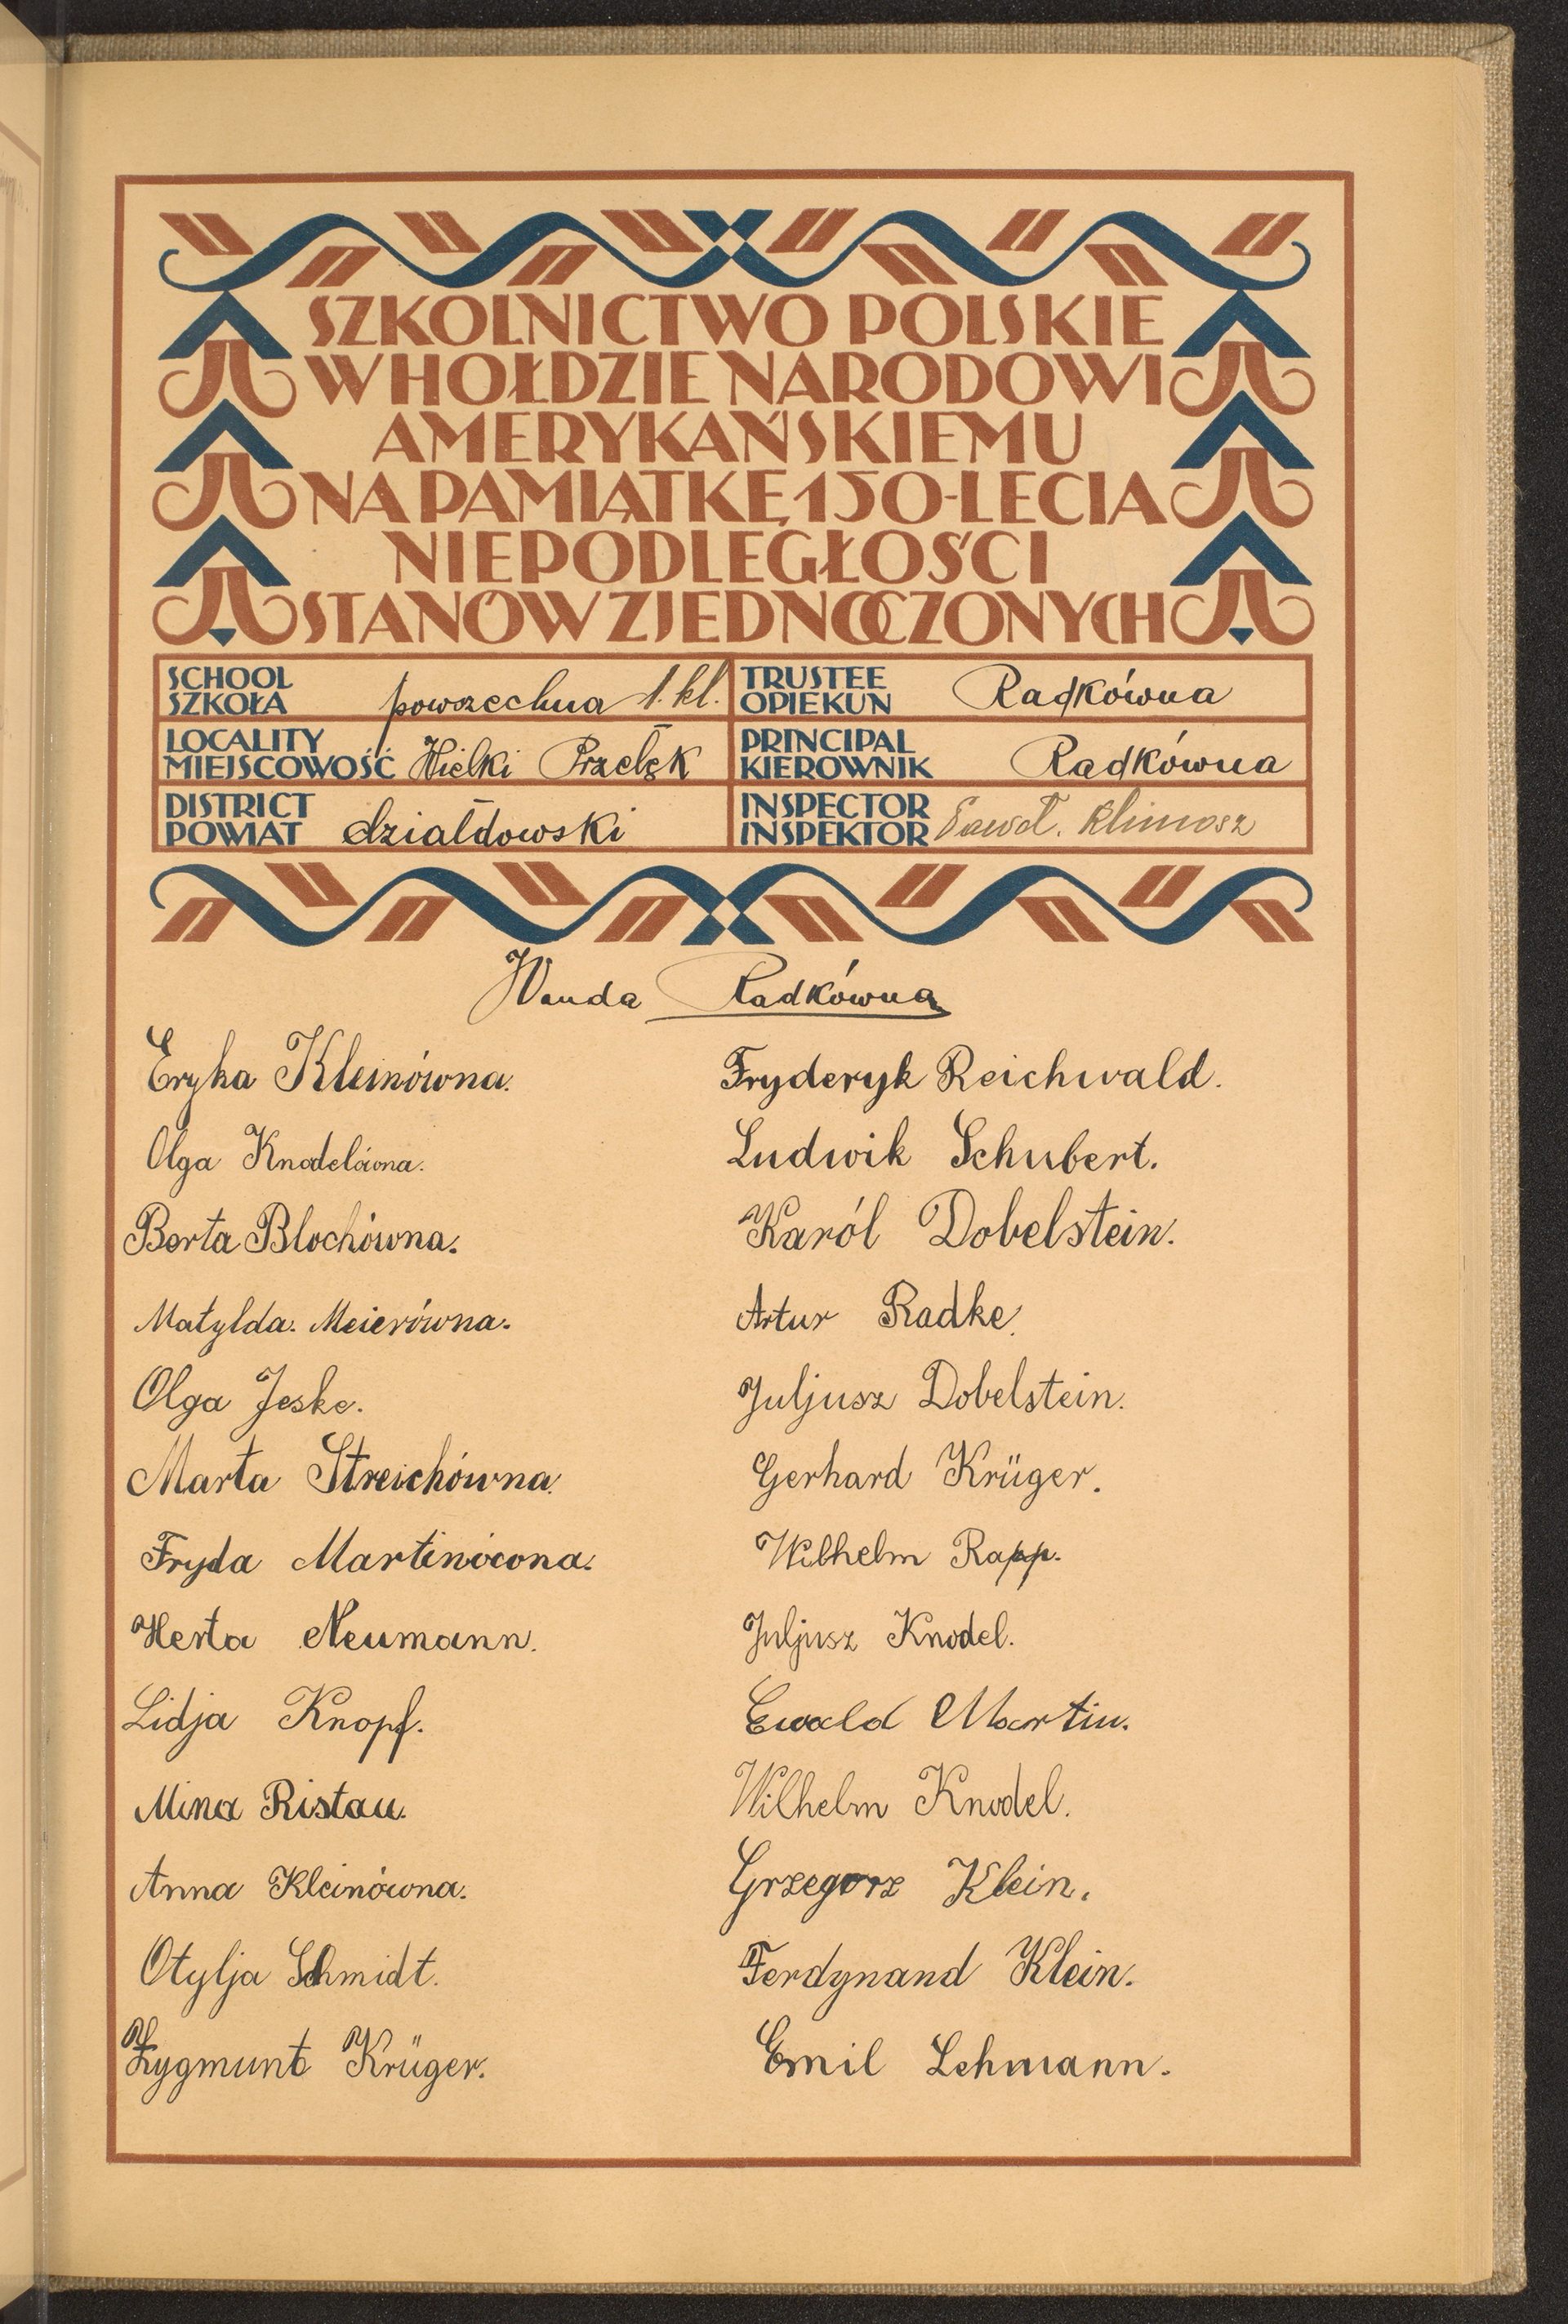 SZKOLNICTWO POLSKIE
W HOŁDZIE NARODOWI
AMERYKAŃSKIEMU
NA PAMIĄTKĘ 150-LECIA
NIEPODLEGŁOŚCI
STANÓW ZJEDNOCZONYCH
SCHOOL
SZKOŁA powszechna 1. kl.
TRUSTEE
OPIEKUN Radkówna
LOCALITY
MIEJSCOWOŚĆ Wielki Przełęk
PRINCIPAL
KIEROWNIK Radkówna
DISTRICT
POWIAT działdowski
INSPECTOR
INSPEKTOR Klimosz
Wanda Radkówna
Eryka Kleinówna.
Fryderyk Reichwald.
Olga Knodelówna.
Ludwik Schubert.
Berta Blochówna.
Karól Dobelstein.
Matylda. Meierówna.
Artur Radke.
Olga Jeske.
Juljusz Dobelstein.
Marta Streichówna.
Gerhard Krüger.
Fryda Martinówna.
Wilhelm Rapp.
Herta Neumann.
Juljusz Knodel.
Lidja Knopf.
Ewald Martin.
Mina Ristau.
Wilhelm Knodel.
Anna Kleinówna.
Grzegorz Klein.
Otylja Schmidt.
Ferdynand Klein.
Zygmunt Krüger.
Emil Lehmann.